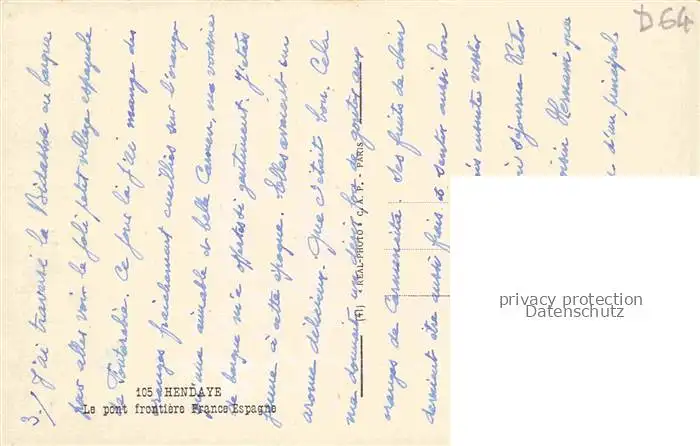 D64
3-/ J'ai traversé la Bidassoa en barque
pour aller voir le joli petit village espagnole
de Fontarabie. Ce jour là j'ai mangé des
oranges fraichement cueillies sur l'oranger
qu'une aimable et belle Carmen, ma voisine
de barque m'a offertes si gentiment. J'étais
jeune à cette époque. Elles avaient un
arome délicieux. Que c'était bon. Cela
me donnait un désir fou de goûter aux
oranges de Carmencita. Ses fruits de chair
devaient être aussi frais et sentir aussi bon
ensuite visiter
séjourna Victor
Hernani que
d'un principal
105 HENDAYE
Le pont frontière France Espagne
(41) REAL-PHOTO C.A.P. - PARIS
privacy protection
Datenschutz